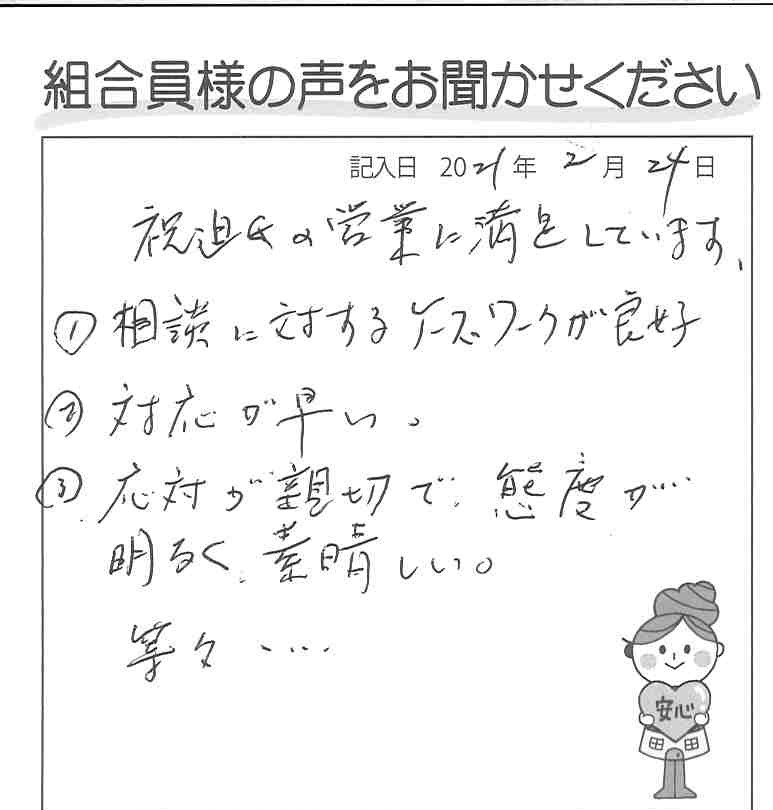 組合員様の声をお聞かせください
記入日 2021年 2月 24日
祝迫氏の営業に満足しています、
① 相談に対するケースワークが良好
② 対応が早い。
③ 応対が親切で、態度が
明るく、素晴しい。
等々‥‥
安心